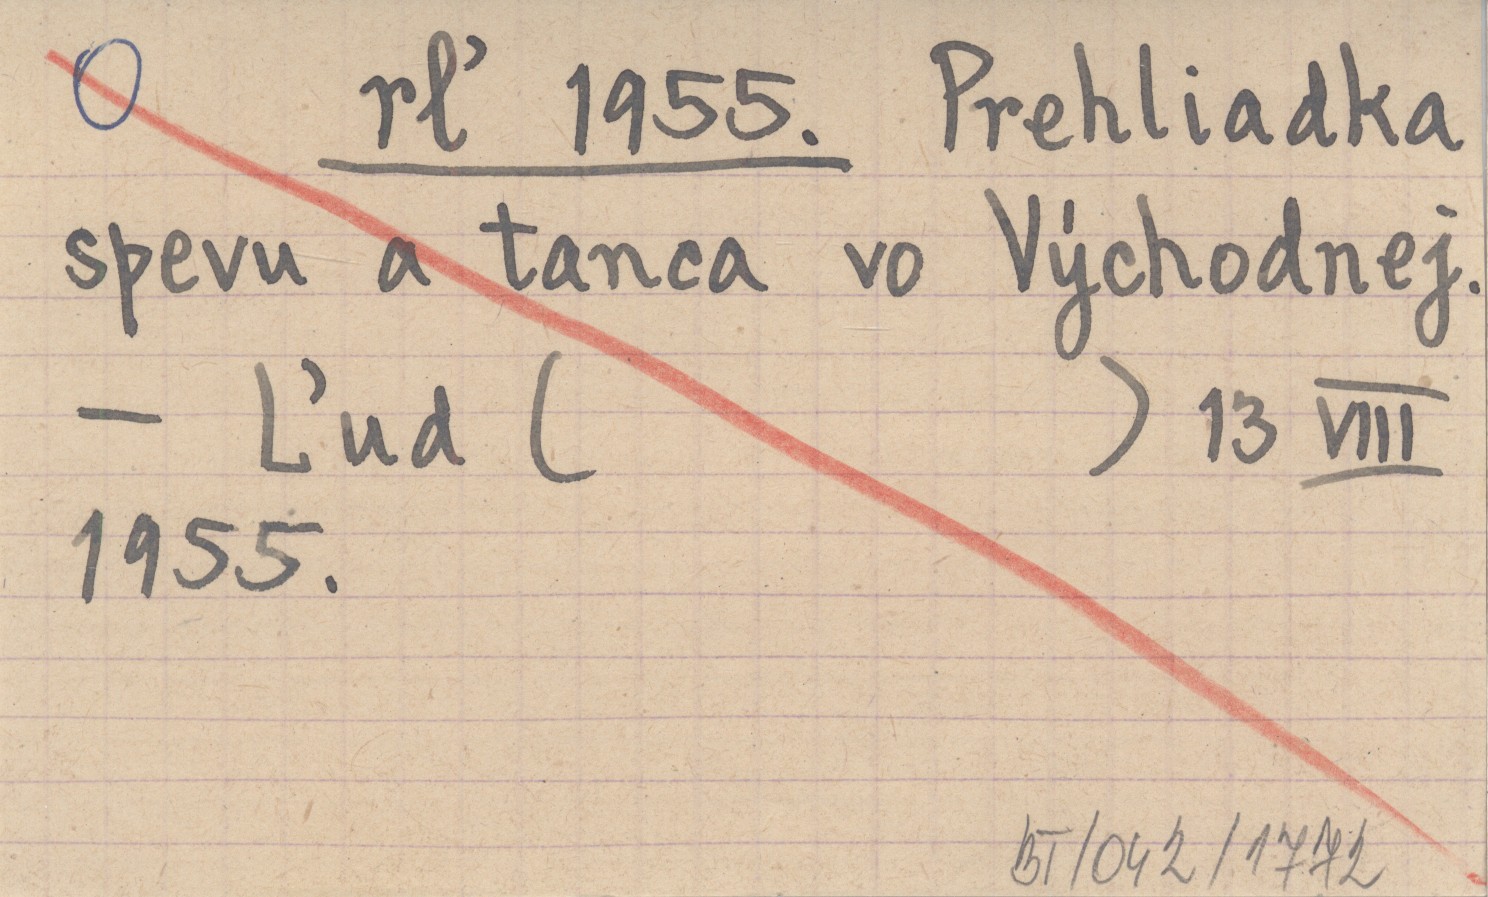 O rľ 1955. Prehliadka
spevu a tanca vo Východnej.
– Ľud ( ) 13 VIII
1955.
BI/042/1772